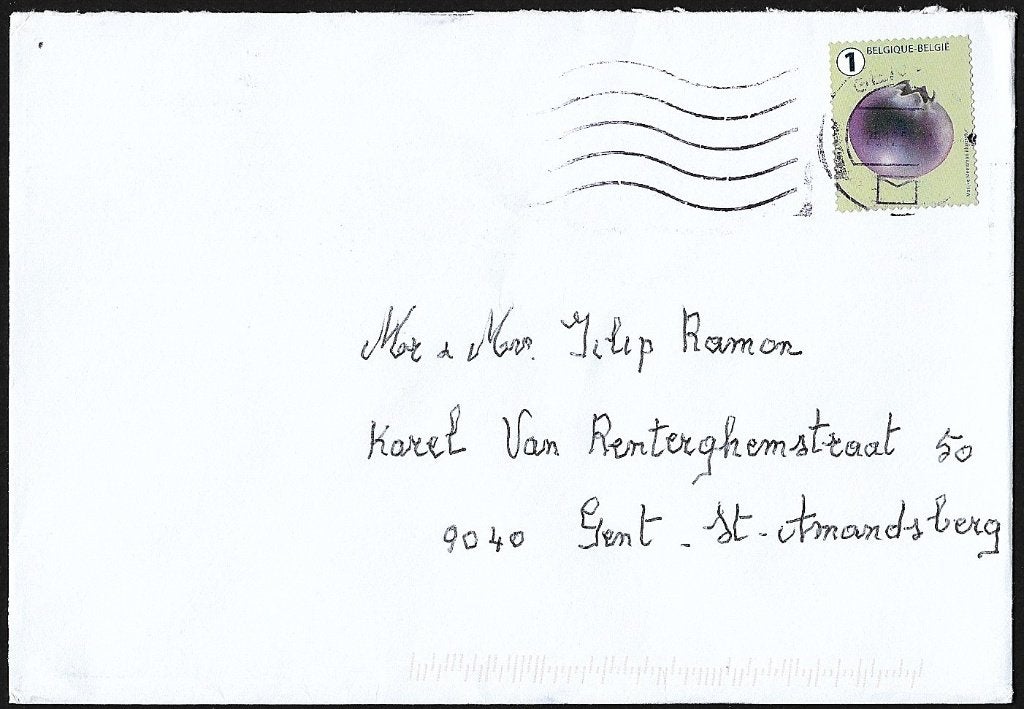 1 BELGIQUE-BELGIË
Mr & Mvr. Filip Ramon
Karel Van Renterghemstraat 50
9040 Gent - St-Amandsberg